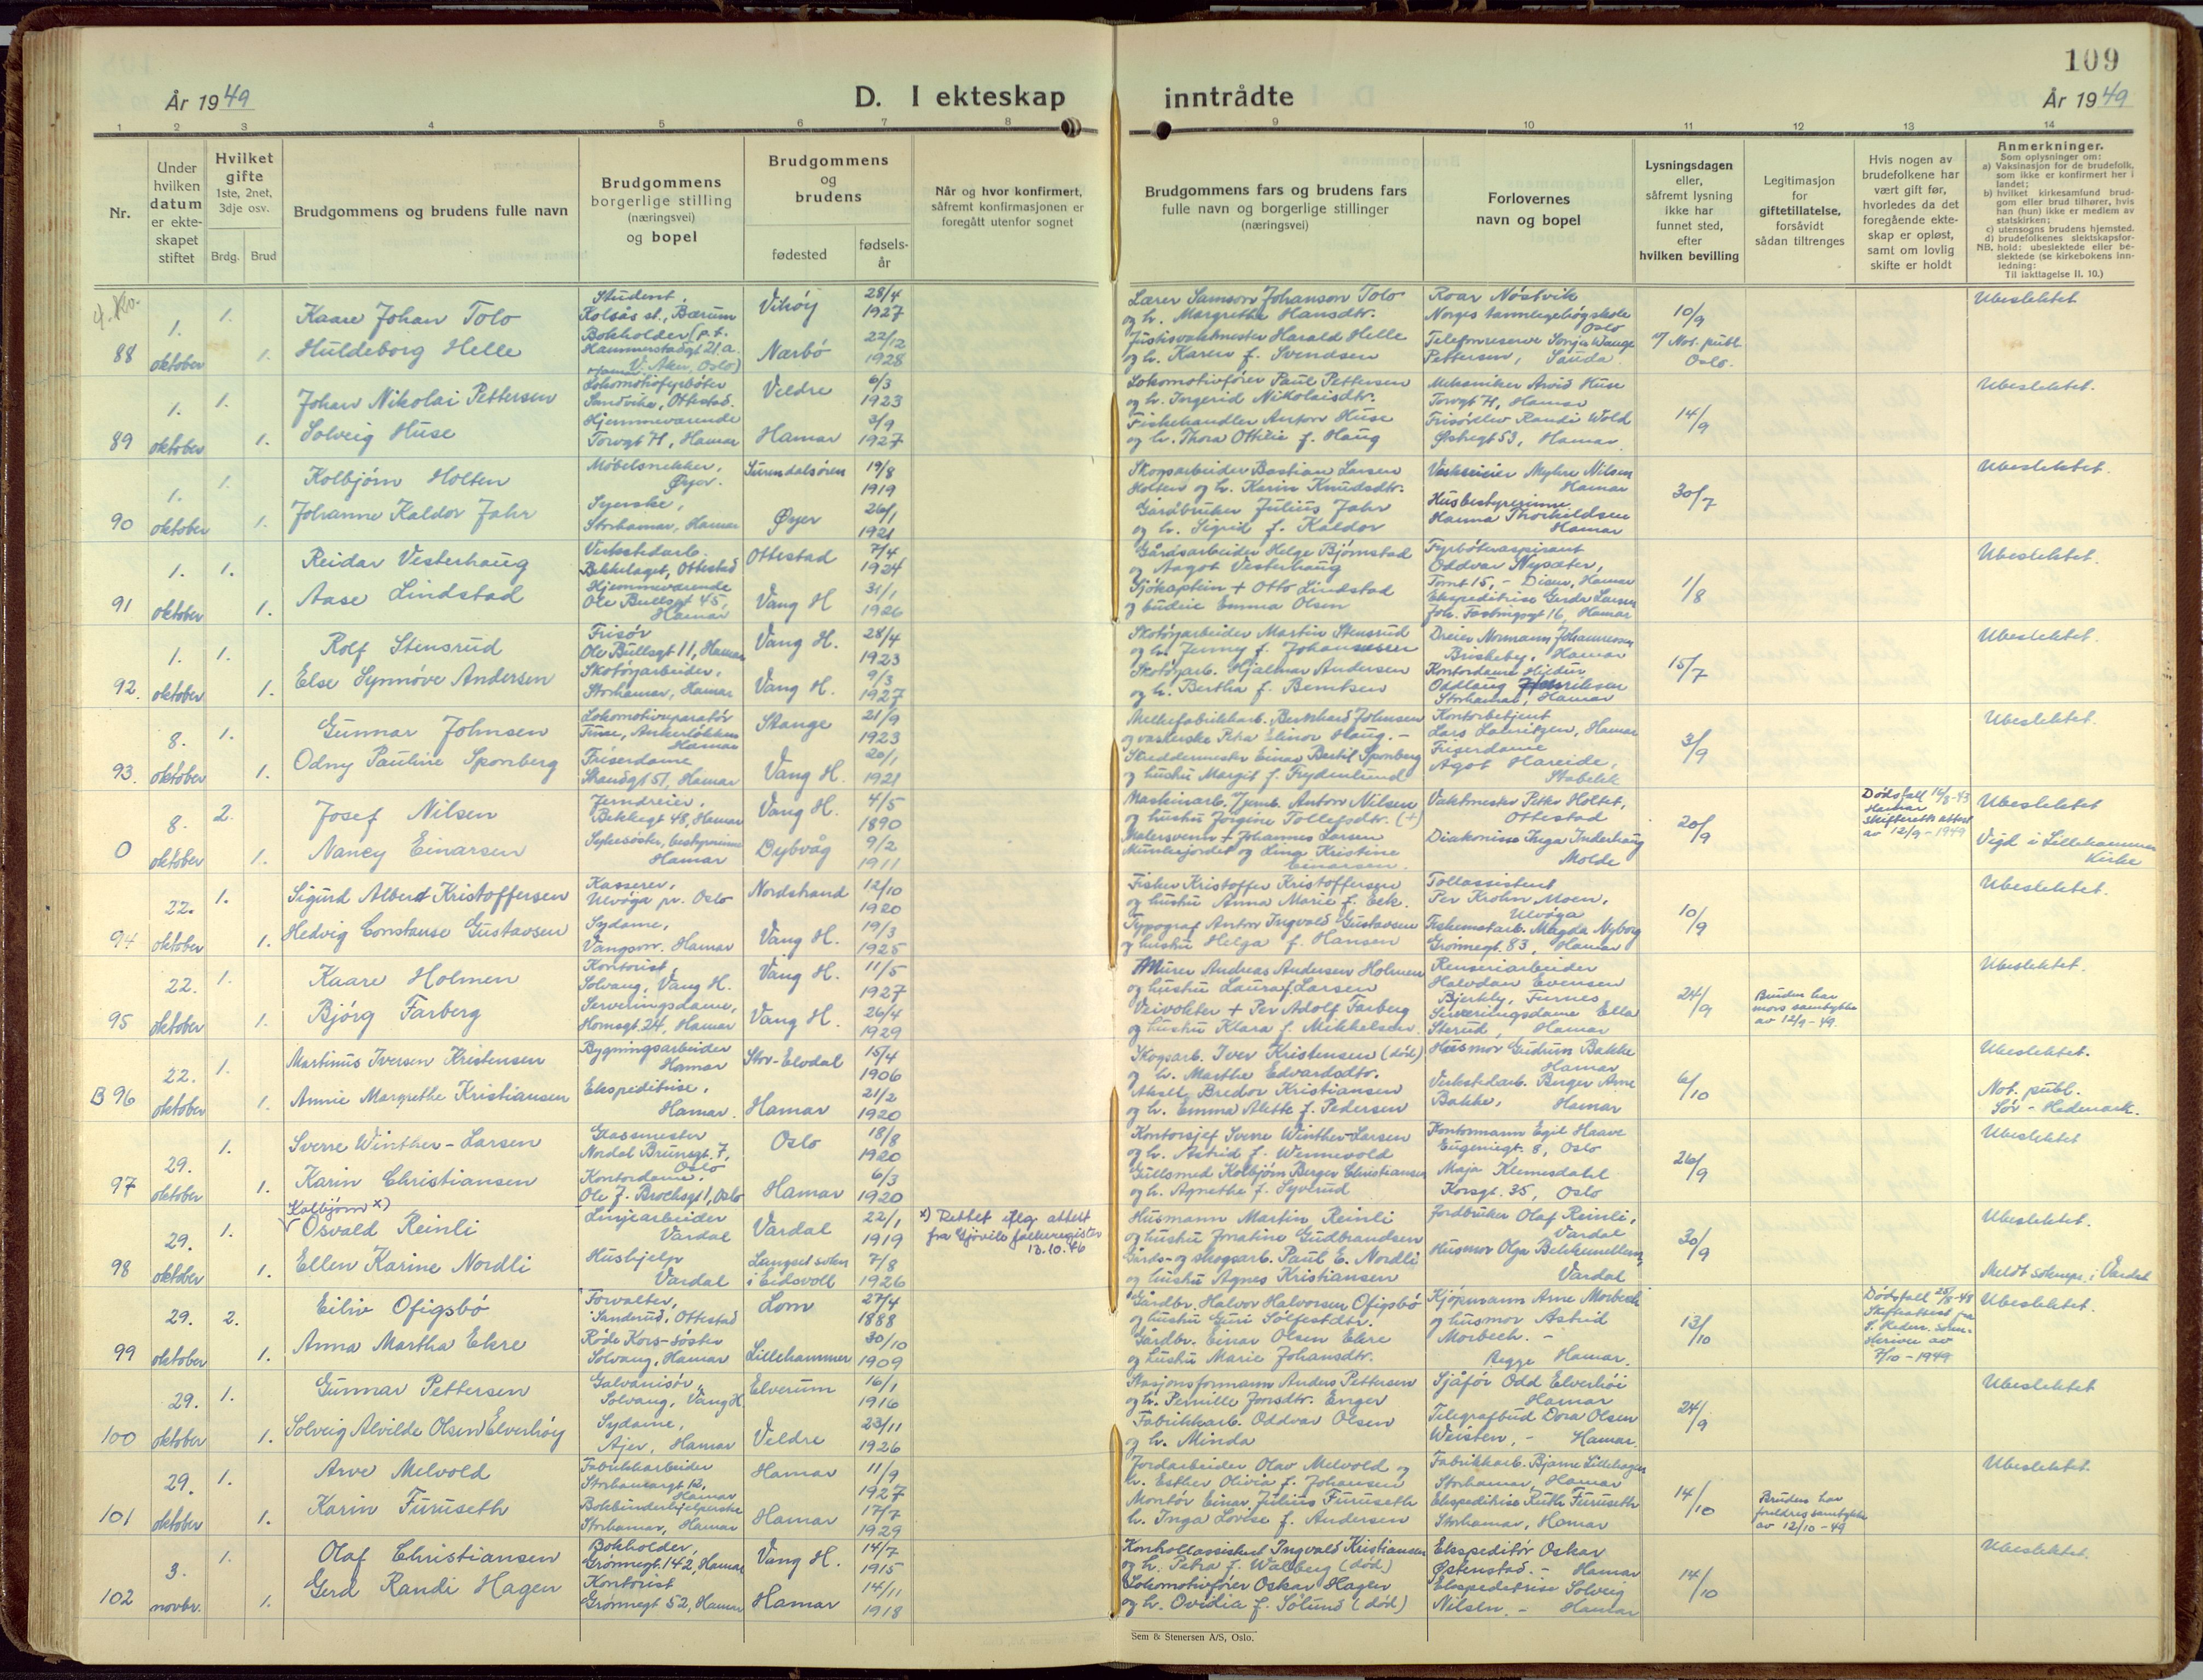 109
År 1949
D. I ekteskap
inntrådte
År 1949
1 2 3 4 5 6 7 8 9 10 11 12 13 14
Nr.
Under
hvilken
datum
er ekte-
skapet
stiftet
Hvilket
gifte
1ste, 2net,
3dje osv.
Brdg. Brud
Brudgommens og brudens fulle navn
Brudgommens
borgerlige stilling
(næringsvei)
og bopel
Brudgommens
og
brudens
fødested
fødsels-
år
Når og hvor konfirmert,
såfremt konfirmasjonen er
foregått utenfor sognet
Brudgommens fars og brudens fars
fulle navn og borgerlige stillinger
(næringsvei)
Forlovernes
navn og bopel
Lysningsdagen
eller,
såfremt lysning
ikke har
funnet sted,
efter
hvilken bevilling
Legitimasjon
for
giftetillatelse,
forsåvidt
sådan tiltrenges
Hvis nogen av
brudefolkene har
vært gift før,
hvorledes da det
foregående ekte-
skap er opløst,
samt om lovlig
skifte er holdt
Anmerkninger.
Som oplysninger om:
a) Vaksinasjon for de brudefolk,
som ikke er konfirmert her i
landet;
b) hvilket kirkesamfund brud-
gom eller brud tilhører, hvis
han (hun) ikke er medlem av
statskirken;
c) utensogns brudens hjemsted.
d) brudefolkenes slektskapsfor-
NB. hold: ubeslektede eller be-
slektede (se kirkebokens inn-
ledning:
Til iakttagelse II. 10.)
88
1. oktober
1. 1.
Kaare Johan Tolo
Huldeborg Helle
Student,
Kolsås st., Bærum
Bokholder (p.t.
Hammerstadgt 21.a.
V. Aker, Oslo)
Vikøy 28/4 1927
Nærbø 22/12 1928
Lærer Samson Johanson Tolo
og h. Margrethe Hansdtr.
Justisvaktmester Harald Helle
og h. Karen f. Svendsen
Roar Nøstvik
Norges tannlegehøgskole
Oslo
Telefonreserve Sonja Wauge
Pettersen, Sauda
10/9
Not. publ.
Oslo.
Ubeslektet
89
1. oktober
1. 1.
Johan Nikolai Pettersen
Solveig Huse
Lokomotivfyrbøter
Sandvika, Ottestad.
Hjemmeværende
Torvgt 71, Hamar
Veldre 6/3 1923
Hamar 3/9 1927
Lokomotivfører Paul Pettersen
og h. Ingerid Nikolaisdtr.
Fiskehandler Anton Huse
og h. Thora Ottilie f. Haug
Mekaniker Arvid Huse
Torvgt 71, Hamar
Frisørelev Randi Wold
Østregt 53, Hamar
14/9
Ubeslektet.
90
1. oktober
1. 1.
Kolbjørn Holten
Johanne Kaldor Jahr
Møbelsnekker,
Øyer.
Syerske,
Storhamar, Hamar
Surendalsøren 19/8 1919
Øyer 26/1 1921
Skogsarbeider Bastian Larsen
Holten og h. Karin Knudsdtr.
Gårdbruker Julius Jahr
og h. Sigrid f. Kaldor
Verkseier Myhre Nilsen
Hamar
Husbestyrerinne
Hanna Thorkildsen
Hamar
30/7
Ubeslektet.
91
1. oktober
1. 1.
Reidar Vesterhaug
Aase Lindstad
Verkstedarb.
Bekkelaget, Ottestad
Hjemmeværende
Ole Bullsgt 45,
Hamar
Ottestad 7/4 1924
Vang H 31/1 1926
Gårdsarbeider Helge Bjørnstad
og Aagot Vesterhaug
Sjøkaptein + Otto Lindstad
og budeie Emma Olsen
Fyrbøteraspirant
Oddvar Nysæter,
Tomt 15, - Disen, Hamar
Ekspeditrise Gerda Larsen
Joh. Fastingsgt 16, Hamar
1/8
Ubeslektet.
92.
1. oktober
1. 1.
Rolf Stensrud
Else Synnøve Andersen
Frisør
Ole Bullsgt 11, Hamar
Skotøyarbeider,
Storhamar, Hamar
Vang H. 28/4 1923
Vang H. 9/3 1927
Skotøyarbeider Martin Stensrud
og h. Jenny f. Johannesen
Skotøyarb. Hjalmar Andersen
og h. Bertha f. Berntsen
Dreier Normann Johannessen
Briskeby, Hamar
Kontordame Hjødur
Oddlaug Henriksen
Storhamar, Hamar
15/7
Ubeslektet.
93.
8. oktober
1. 1.
Gunnar Johnsen
Odny Pauline Sponberg
Lokomotivreparatør
Furu, Ankerløkken
Hamar
Friserdame
Strandgt 51, Hamar
Stange 21/9 1923
Vang H. 20/1 1921
Melkefabrikkarb. Bernhard Johnsen
og vaskerske Petra Elinor Haug. -
Skreddermester Einar Bertil Sponberg
og hustru Margit f. Frydenlund
Kontorbetjent
Lars Lauritzen, Hamar
Friserdame
Agot Hareide,
Stabekk
3/9
Ubeslektet.
0
8. oktober
2. 1.
Josef Nilsen
Nancy Einarsen
Jerndreier,
Bekkegt 48, Hamar
Sykesøster, bestyrerinne
Hamar
Vang H. 4/5 1890
Dybvåg 9/2 1911
Maskinarb. v/jernb. Anton Nilsen
og hustru Jørgine Tollefsdtr. (+)
Malersvenn + Johannes Larsen
Munkejordet og Lina Kristine
Einarsen
Vaktmester Petter Holtet,
Ottestad
Diakonisse Inga Inderhaug
Molde
20/9
Dødsfall 16/8-43
Hamar
skifteretts attest
av 12/9 - 1949
Ubeslektet
Vigd i Lillehammer
Kirke
94
22. oktober
1. 1.
Sigurd Albert Kristoffersen
Hedvig Constanse Gustavsen
Kasserer,
Ulvøya pr. Oslo
Sydame,
Vangsvn. Hamar
Nordstrand 12/10 1920
Vang H. 19/3 1925
Fisker Kristoffer Kristoffersen
og hustru Anna Marie f. Eek.
Typograf Anton Ingvald Gustavsen
og hustru Helga f. Hansen
Tollassistent
Per Krohn Moen,
Ulvøya
Fiskematarb. Magda Nyborg
Grønnegt. 83, Hamar
10/9
Ubeslektet.
95
22. oktober
1. 1.
Kaare Holmen
Bjørg Farberg
Kontorist,
Solvang, Vang H.
Serveringsdame,
Homsgt. 24, Hamar
Vang H. 11/5 1927
Vang H. 26/4 1929
Murer Andreas Andersen Holmen
og hustru Laura f. Larsen
Veivokter + Per Adolf Farberg
og hustru Klara f. Mikkelsen
Renseriarbeider
Halvdan Evensen
Bjerkely, Furnes
Serveringsdame Ella
Sterud, Hamar
24/9
Bruden har
mors samtykke
av 12/9 - 49.
Ubeslektet.
B 96
22. oktober
1. 1.
Martinus Iversen Kristensen
Annie Margrethe Kristiansen
Bygningsarbeider
Hamar
Ekspeditrise,
Hamar.
Stor-Elvdal 15/4 1906
Hamar 21/2 1920
Skogsarb. Iver Kristensen (død)
og h. Marthe Edvardsdtr.
Aksel Bredor Kristiansen
og h. Emma Alette f. Pedersen
Husmor Gudrun Bakke
Hamar
Verkstedarb. Birger Arne
Bakke, Hamar
6/10
Ubeslektet.
Not. publ.
Sør - Hedmark.
97
29. oktober
1. 1.
Sverre Winther-Larsen
Karin Christiansen
Glassmester
Nordal Brunsgt. 7,
Oslo
Kontordame,
Ole J. Brochsgt 1, Oslo
Oslo 18/8 1920
Hamar 6/3 1920
Kontorsjef Sverre Winther-Larsen
og h. Astrid f. Wennevold
Gullsmed Kolbjørn Berger Christiansen
og h. Agnethe f. Syverud
Kontormann Egil Haave
Eugeniegt. 8, Oslo
Maja Klemsdahl
Korsgt. 35, Oslo
26/9
Ubeslektet
98
29. oktober
1. 1.
Kolbjørn x)
Osvald Reinli
Ellen Karine Nordli
Linjearbeider
Vardal
Hushjelp
Vardal
Vardal 22/1 1919
Langset sokn
i Eidsvoll 7/8 1926
x) Rettet iflg attest
fra Gjøvik folkeregister
12.10.46
Husmann Martin Reinli
og hustru Jonatine Gudbrandsen
Gårds- og skogsarb. Paul E. Nordli
og hustru Agnes Kristiansen
Jordbruker Olaf Reinli,
Vardal
Husmor Olga Bekkemellem,
Vardal
30/9
Ubeslektet.
Meldt soknepr. i Vardal
99
29. oktober
2. 1.
Eiliv Ofigsbø
Anna Martha Ekre
Forvalter,
Sanderud, Ottestad
Røde Kors-søster
Solvang, Hamar
Lom 27/4 1888
Lillehammer 30/10 1909
Gårdbr. Halvor Halvorsen Ofigsbø
og hustru Guri Solfestdtr.
Gårdbr. Einar Olsen Ekre
og hustru Marie Johansdtr.
Kjøpmann Arne Morbech
og husmor Astrid
Morbech. -
Begge Hamar.
13/10
Dødsfall 25/8-48
Skifteattest fra
S. Hedm. soren-
skriver av
7/10 - 1949
Ubeslektet.
100
29. oktober
1. 1.
Gunnar Pettersen
Solveig Alvilde Olsen Elverhøy
Galvanisør,
Solvang, Vang H.
Sydame,
Ajer, Hamar
Elverum 16/1 1916
Veldre 23/11 1926
Stasjonsformann Anders Pettersen
og h. Pernille Jonsdtr. Enger
Fabrikkarb. Oddvar Olsen
og h. Minda
Sjåfør Odd Elverhøi
Hamar
Telegrafbud Dora Olsen
Weisten, - Hamar.
24/9
Ubeslektet
101
29. oktober
1. 1.
Arve Melvold
Karin Furuseth
Fabrikkarbeider
Storhamargt 12,
Hamar
Bokbinderhjelperske
Storhamar, Hamar
Hamar 11/9 1927
Hamar 17/7 1929
Jordarbeider Olav Melvold og
h. Esther Olivia f. Johansen
Montør Einar Julius Furuseth
h. Inga Lovise f. Andersen
Fabrikkarb. Bjarne Lillehagen
Storhamar, Hamar
Ekspeditrise Ruth Furuseth
Storhamar, Hamar
14/10
Bruden har
foreldres samtykke
av 12/10 - 49
Ubeslektet.
102
3. novbr.
1. 1.
Olaf Christiansen
Gerd Randi Hagen
Bokholder,
Grønnegt. 142, Hamar
Kontorist
Grønnegt 52, Hamar
Vang H. 14/7 1915
Hamar 14/11 1918
Kontrollassistent Ingvald Kristiansen
og h. Petra f. Walberg (død)
Lokomotivfører Oskar Hagen
og h. Ovidia f. Sølund (død)
Ekspeditør Oskar
Østenstad. - Hamar
Ekspeditrise Solveig
Nilsen - Hamar
14/10
Ubeslektet.
Sem & Stenersen A/S, Oslo.